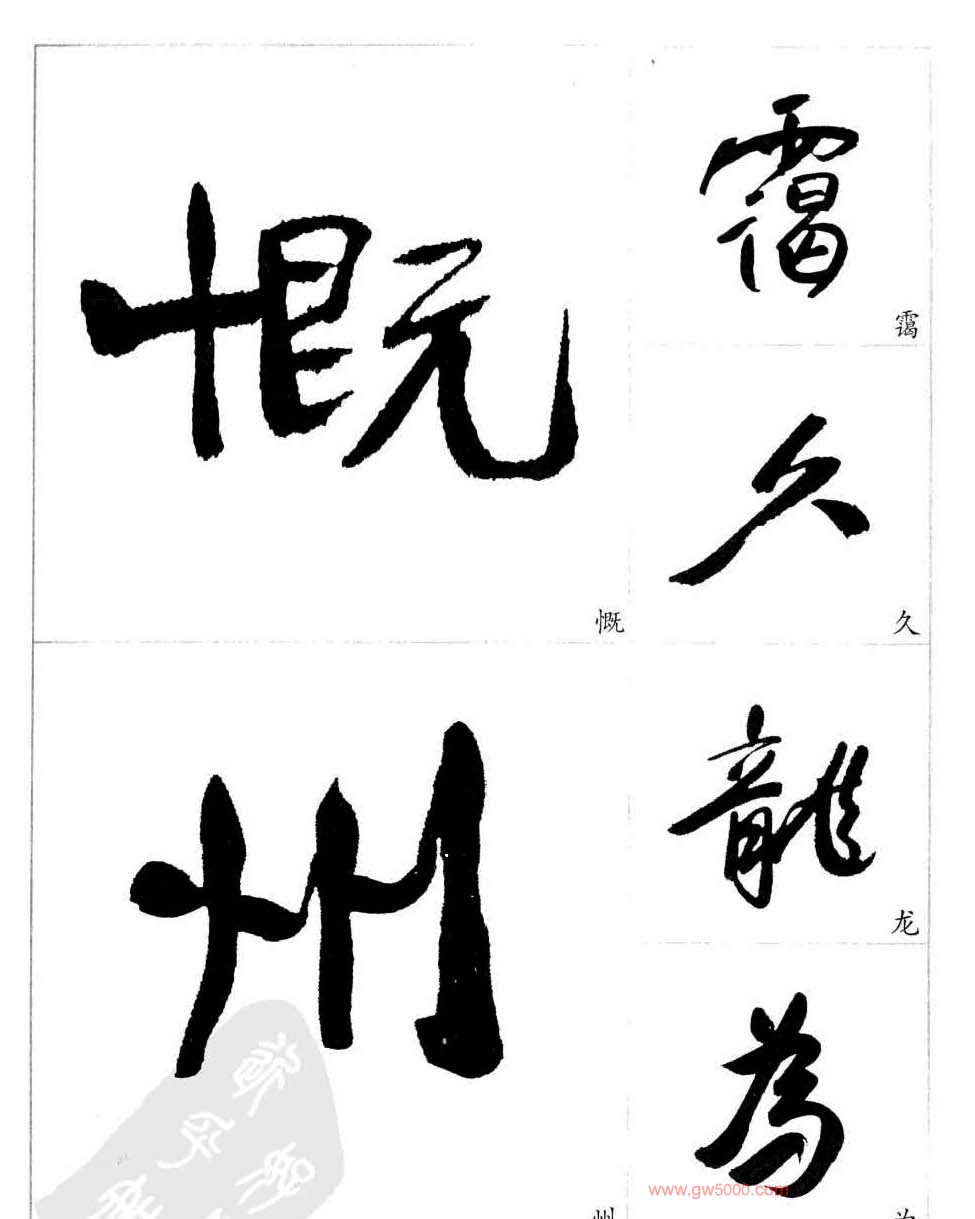 慨
慨
州
州
霭
霭
久
久
龍
龙
為
www.gw5000.com